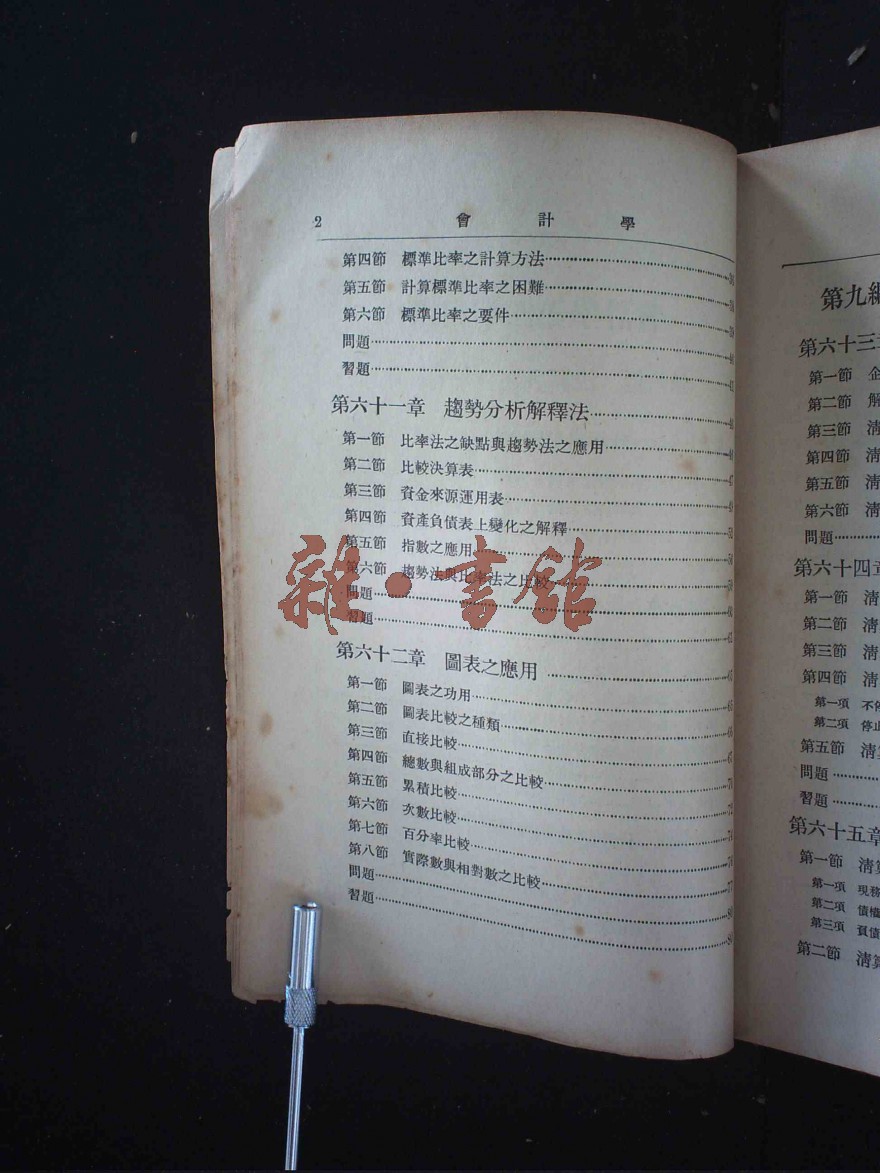 2 會計學
第四節 標準比率之計算方法
第五節 計算標準比率之困難
第六節 標準比率之要件
問題
習題
第六十一章 趨勢分析解釋法
第一節 比率法之缺點與趨勢法之應用
第二節 比較決算表
第三節 資金來源運用表
第四節 資產負債表上變化之解釋
第五節 指數之應用
第六節 趨勢法與比率法之比較
問題
習題
第六十二章 圖表之應用
第一節 圖表之功用
第二節 圖表比較之種類
第三節 直接比較
第四節 總數與組成部分之比較
第五節 累積比較
第六節 次數比較
第七節 百分率比較
第八節 實際數與相對數之比較
問題
習題
雜·書館
第九編
第六十三章
第一節 企
第二節 解
第三節 清
第四節 清
第五節 清
第六節 清
問題
第六十四章
第一節 清
第二節 清
第三節 清
第四節 清
第一項 不停
第二項 停止
第五節 清算
問題
習題
第六十五章
第一節 清算
第一項 現務
第二項 債權
第三項 負債
第二節 清算